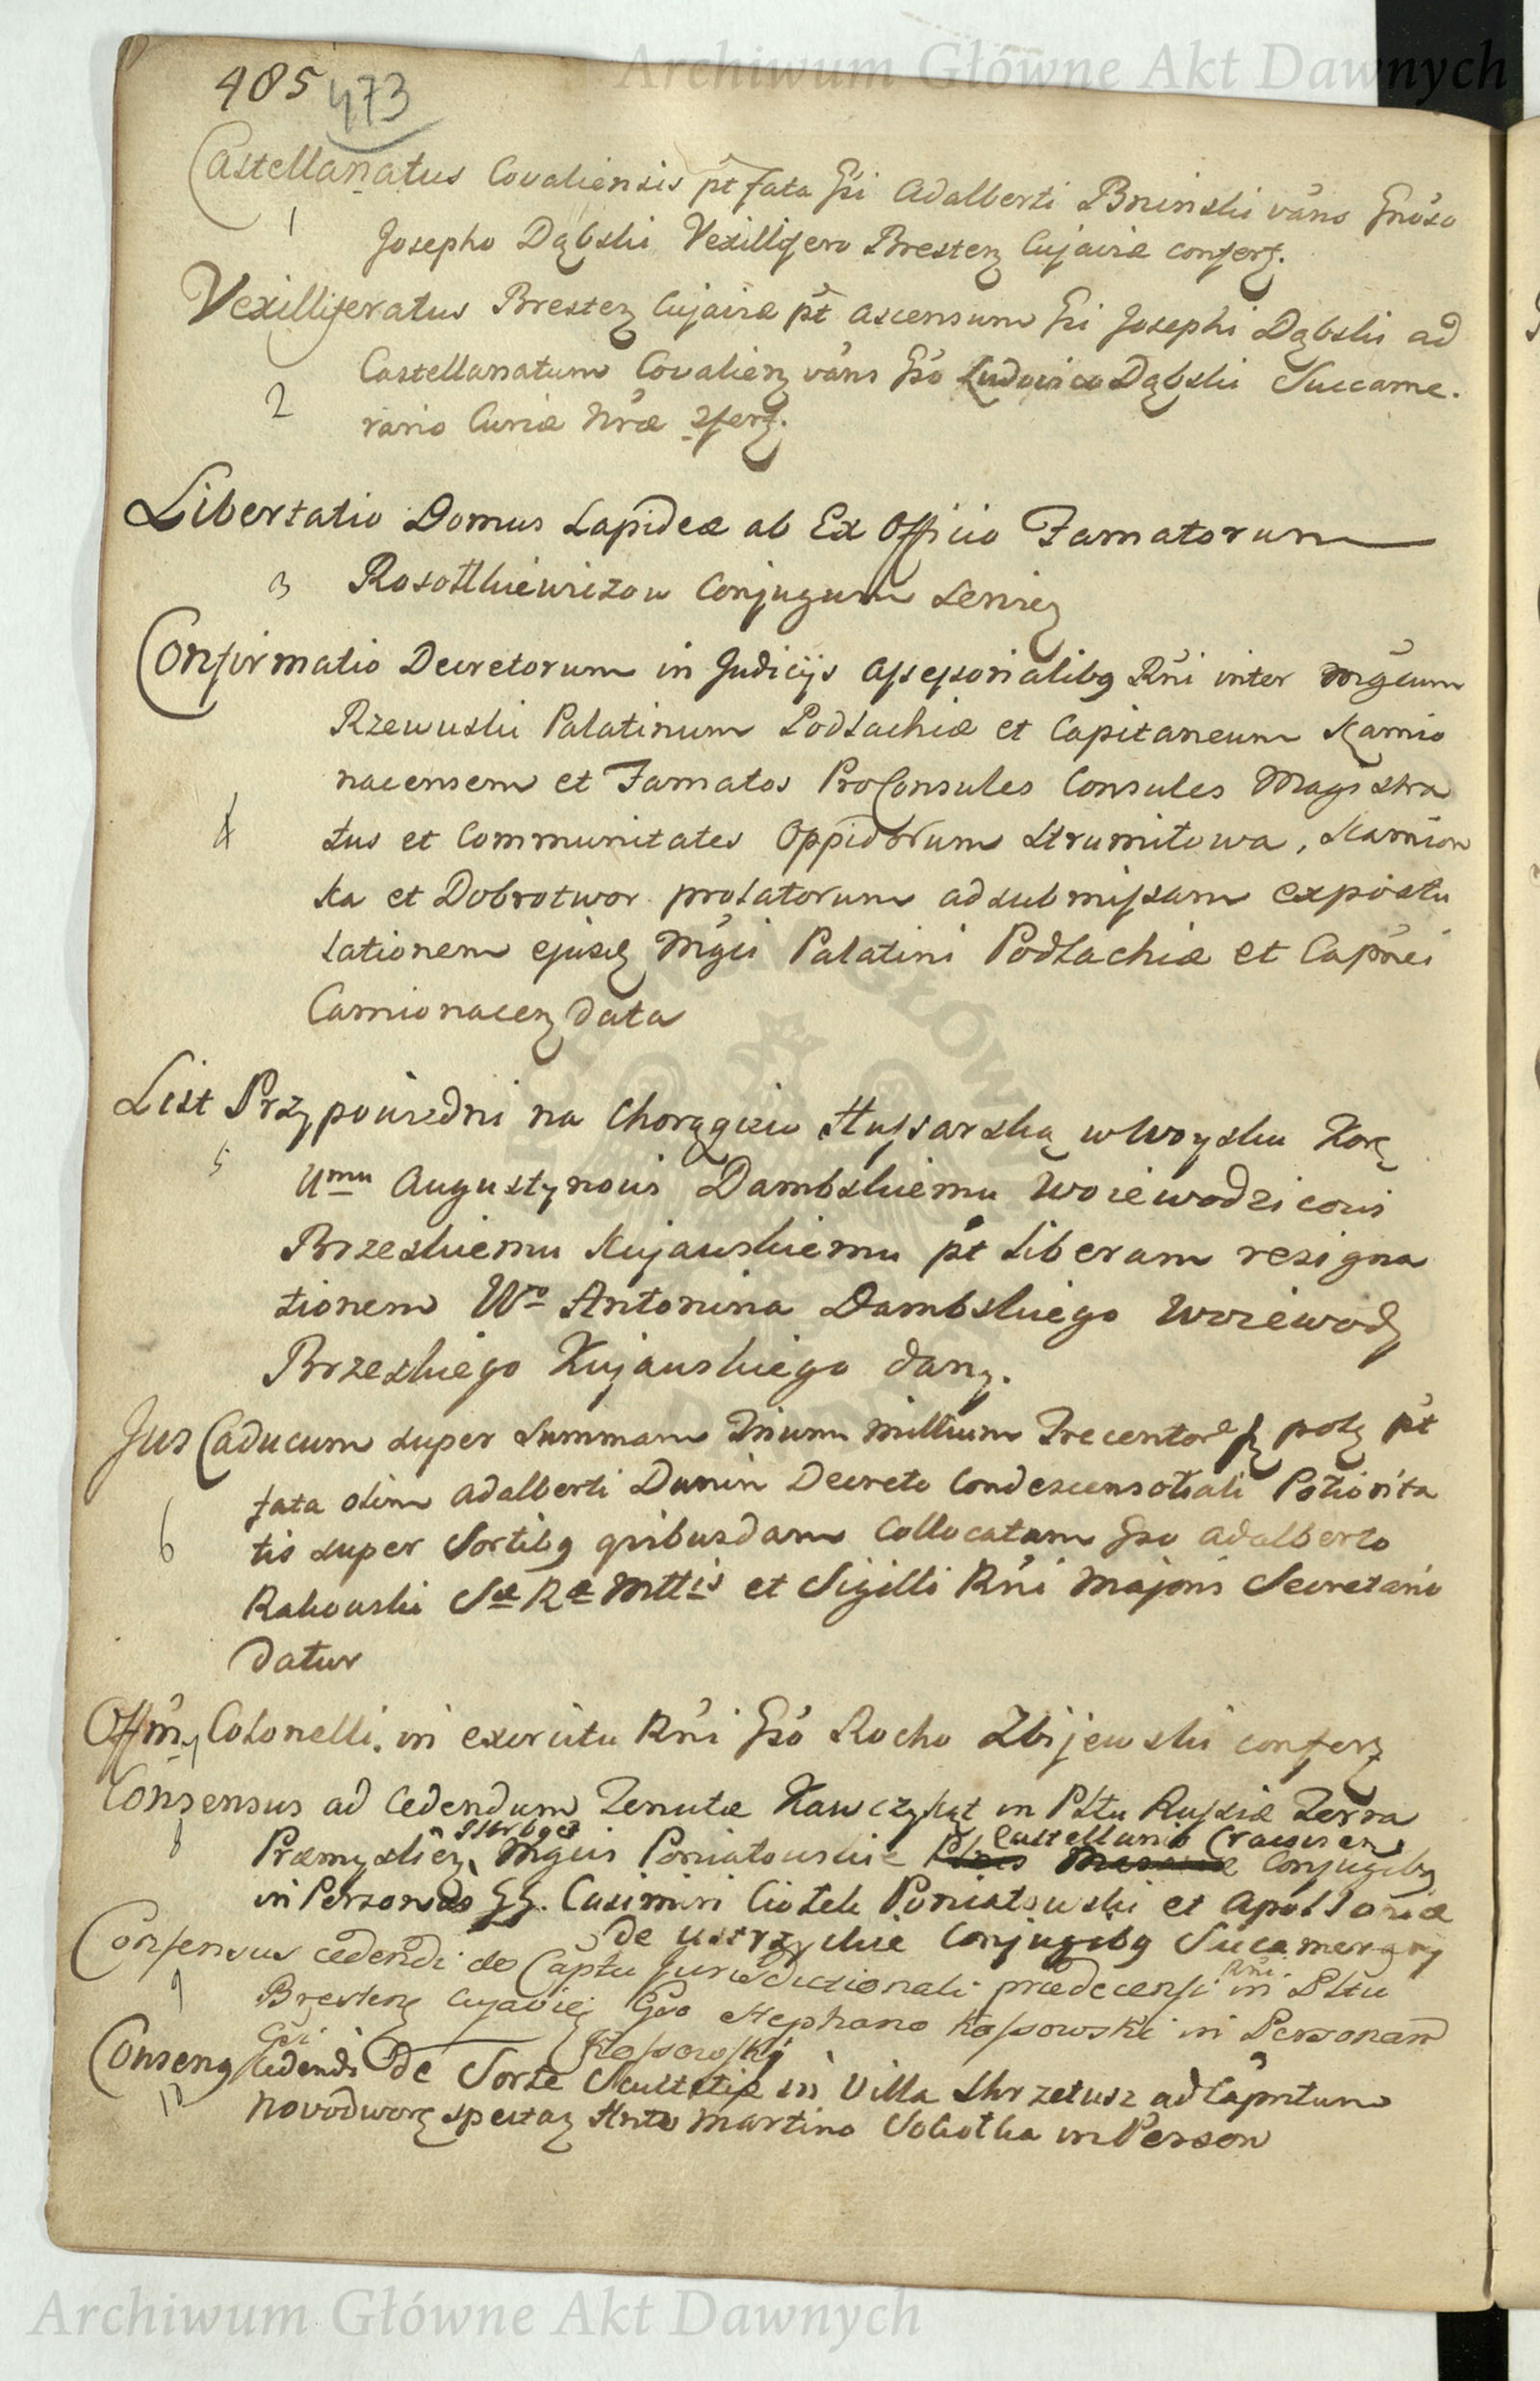 Archiwum Główne Akt Dawnych
485 473
Castellanatus Covaliensis pt fata Gsi Adalberti Bninski váns Gnóso
1
Josepho Dąbski Vexillifero Brestez Cujaviæ conferz.
Vexilliferatus Brestez Cujaviæ pt ascensum Gsi Josephi Dąbski ad
2
Castellanatum Covalienz váns Gso Ludovico Dąbski Succame.
rario Curiæ Nræ 2ferz.
Libertatio Domus Lapideæ ab Ex Officio Famatorum
3 Conjugum
Confirmatio Decretorum in Judicijs Assessorialibg Rñi inter Mgcum
Rzewuski Palatinum Podlachiæ et Capitaneum Kamio
nacensem et Famatos ProConsules Consules Magistra
4 tus et Communitates Oppidorum Strumitowa, Kamion
ka et Dobrotwor prolatorum ad submissam expostu
lationem ejusdz Mgci Palatini Podlachiæ et Capnei
Camionacenz data
List Przypowiedni na Chorągiew Hussarską w Woysku Kor
5
Umu Augustynowi Dambskiemu Woiewodzicowi
Brzeskiemu Kujawskiemu pt liberam resigna
tionem Wo Antonina Dambskiego Woiewody
Brzeskiego Kujawskiego dany.
Jus Caducum super Summam Trium millium Trecentor polz pt
fata olim Adalberti Dunin Decreto Condescensoriali Potiorita
6 tis super Sortibg quibusdam Collocatam Gso Adalberto
Rakowski Sæ Ræ Mttis et Sigilli Rñi Majoris Secretario
datur
Offm 7 Colonelli in exercitu Rñi Gsó Rocho Zbijewski conferz
Consensus ad Cedendum Tenutæ in Pttu Russiæ Terra
8 Castellanis Cracovien
Præmysliēz Mgcis Poniatowskie Conjugibg
in Personas GG. Casimiri Ciołek Poniatowski et Apolloniæ
de Ustrzyckie Conjugibg
Consensus cedendi de Captu Jurisdictionali prædecensi in Pttu
Rñi.
9 Brestenz Cujaviez Gso Stephano Kossowski in Personam
Gsi Kossowski
Consensg Cedendi de Sorte Scultetiæ in Villa Skrzetusz ad Capnitum
10
Novodworz spectaz Martino Sobotka in Person
Archiwum Główne Akt Dawnych